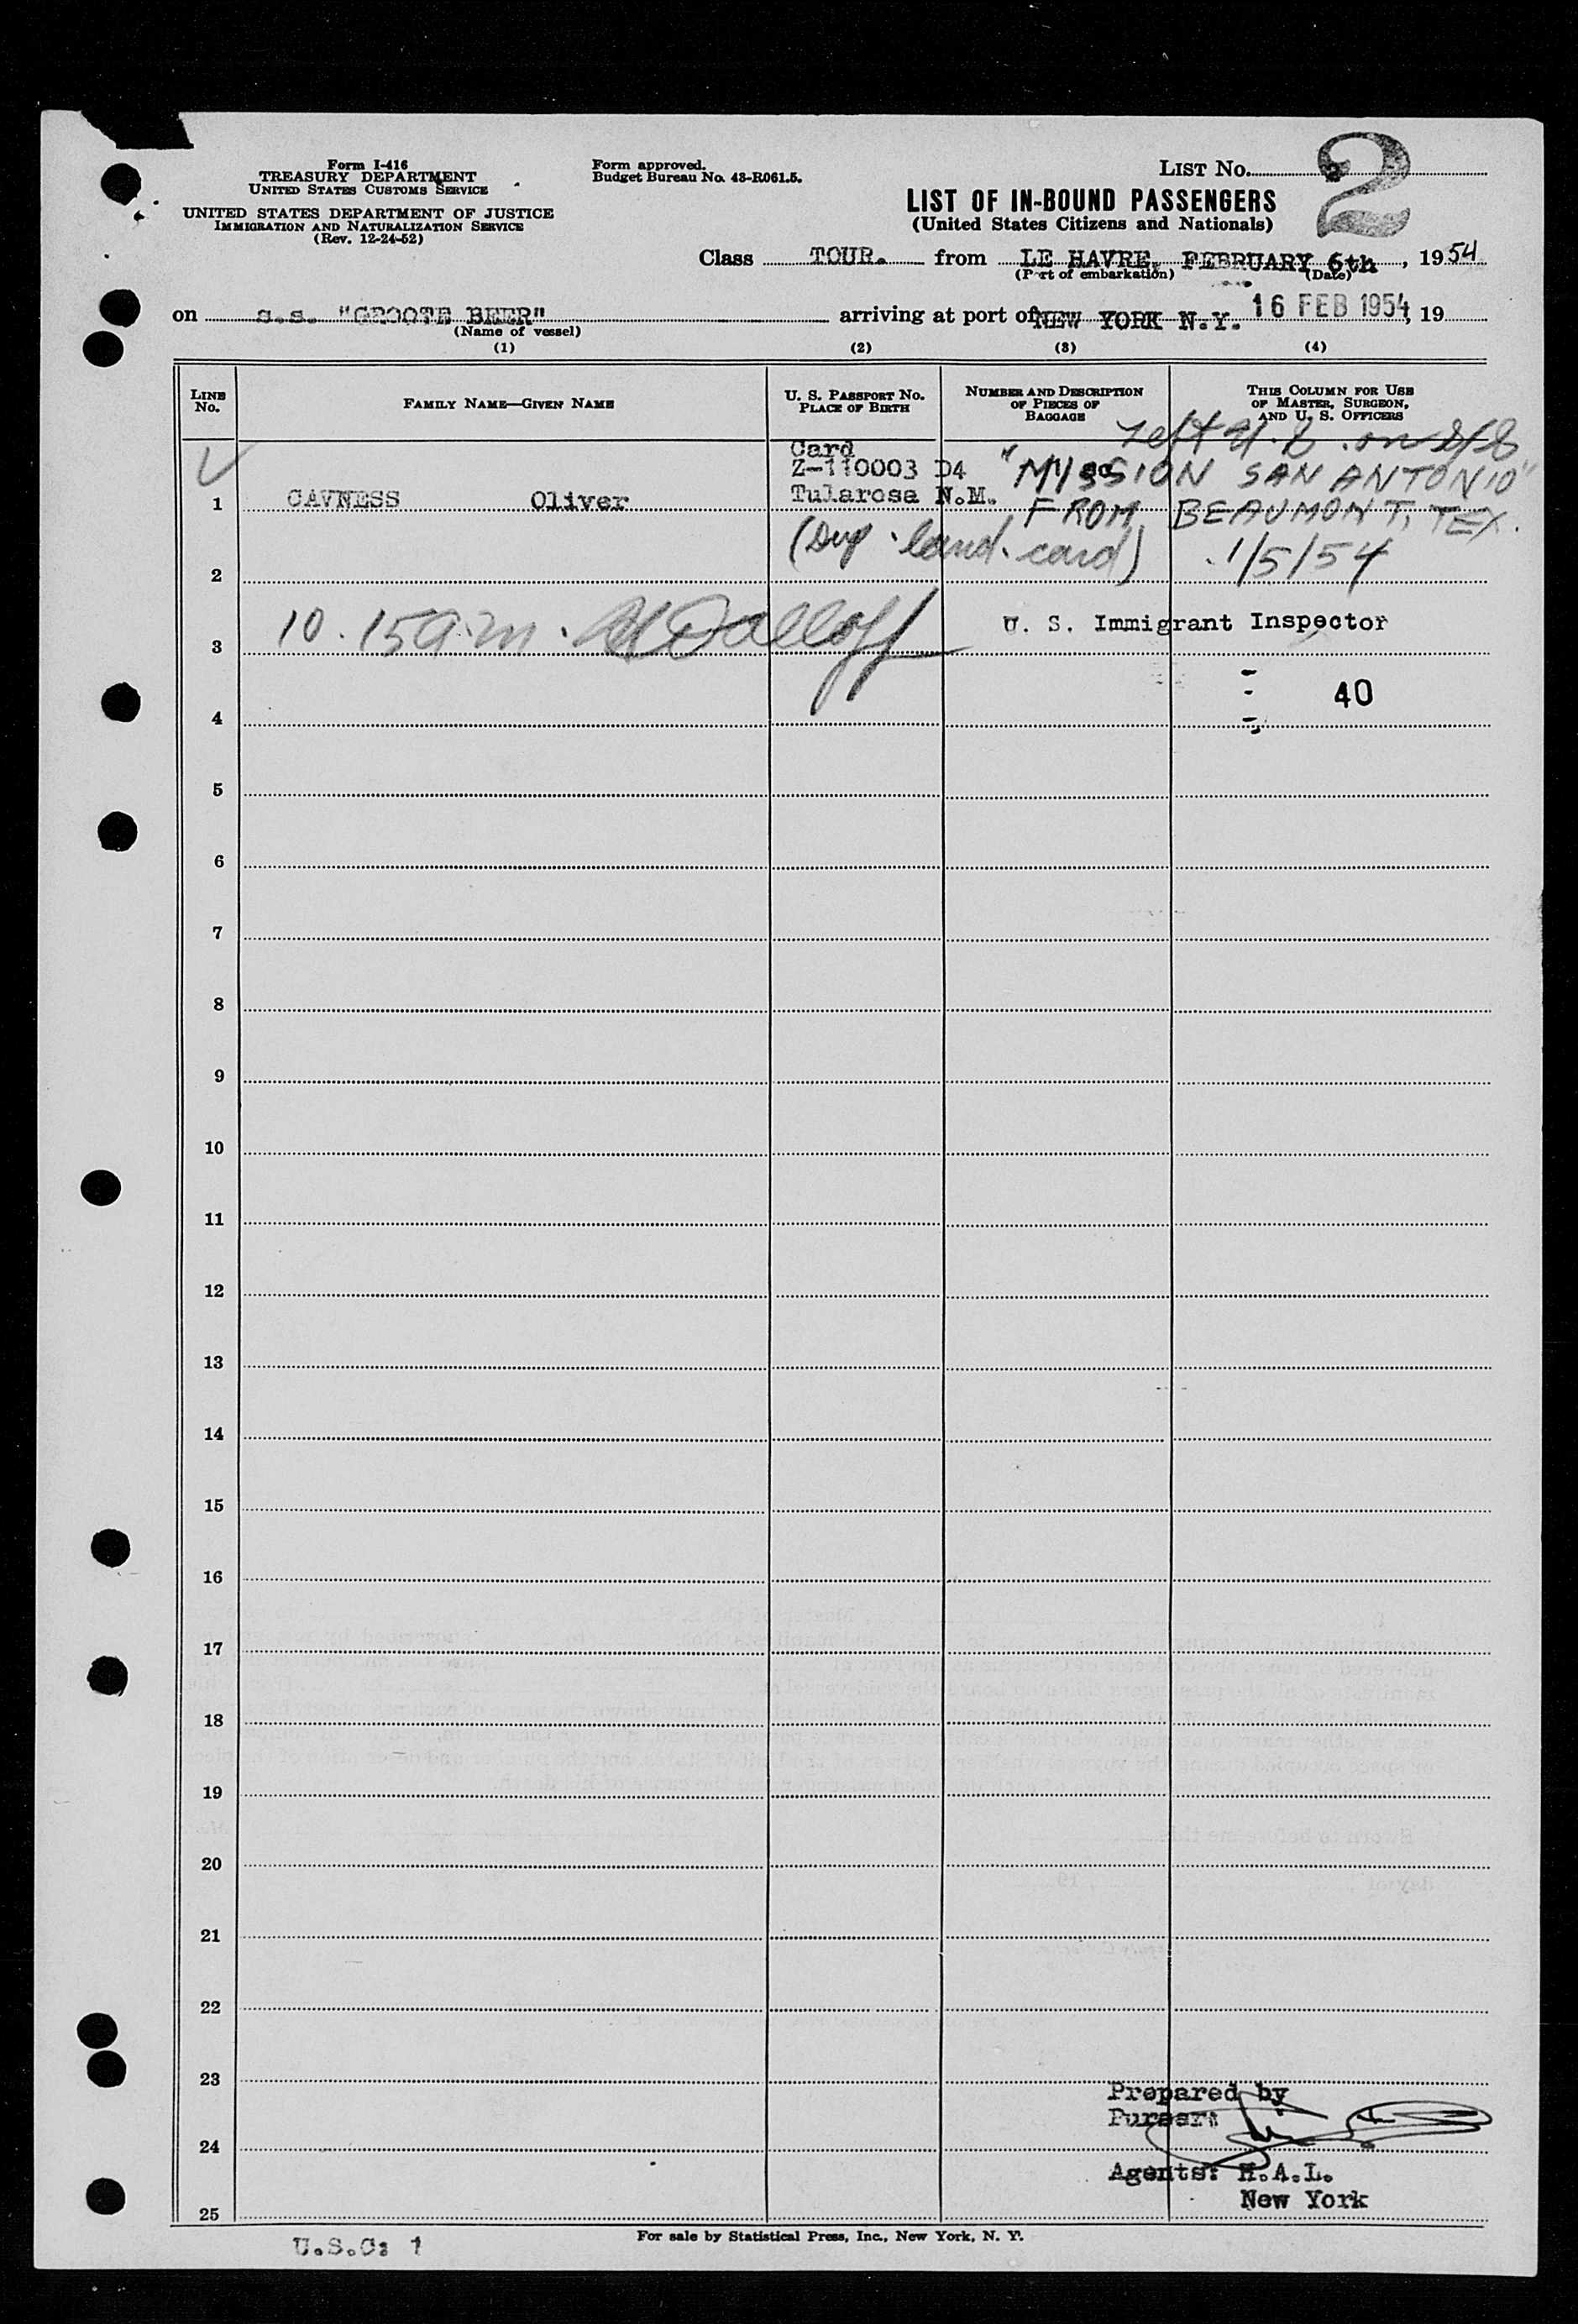 Form I-416
TREASURY DEPARTMENT
UNITED STATES CUSTOMS SERVICE
UNITED STATES DEPARTMENT OF JUSTICE
IMMIGRATION AND NATURALIZATION SERVICE
(Rev. 12-24-52)
Form approved.
Budget Bureau No. 43-R061.5.
LIST No. 2
2
LIST OF IN-BOUND PASSENGERS
(United States Citizens and Nationals)
Class TOUR. from LE HAVRE, FEBRUARY 6th, 1954
(Port of embarkation) (Date)
on s.s. "GROOTE BEER" arriving at port of NEW YORK N.Y. 16 FEB 1954, 19
(Name of vessel)
(1) (2) (3) (4)
LINE No. FAMILY NAME—GIVEN NAME U. S. PASSPORT No. PLACE OF BIRTH NUMBER AND DESCRIPTION OF PIECES OF BAGGAGE THIS COLUMN FOR USE OF MASTER, SURGEON, AND U. S. OFFICERS
Left U.S. on S/S
Card
Z-110003 D4 "MISSION SAN ANTONIO"
1 CAVNESS Oliver Tularosa N.M.
FROM BEAUMONT, TEX.
(Dup. land. card) 1/5/54
2
10.15 a.m. U. S. Immigrant Inspector
3
40
4
5
6
7
8
9
10
11
12
13
14
15
16
17
18
19
20
21
22
23
Prepared by
Purser:
24
Agents: H.A.L.
New York
25
U.S.C: 1
For sale by Statistical Press, Inc., New York, N. Y.